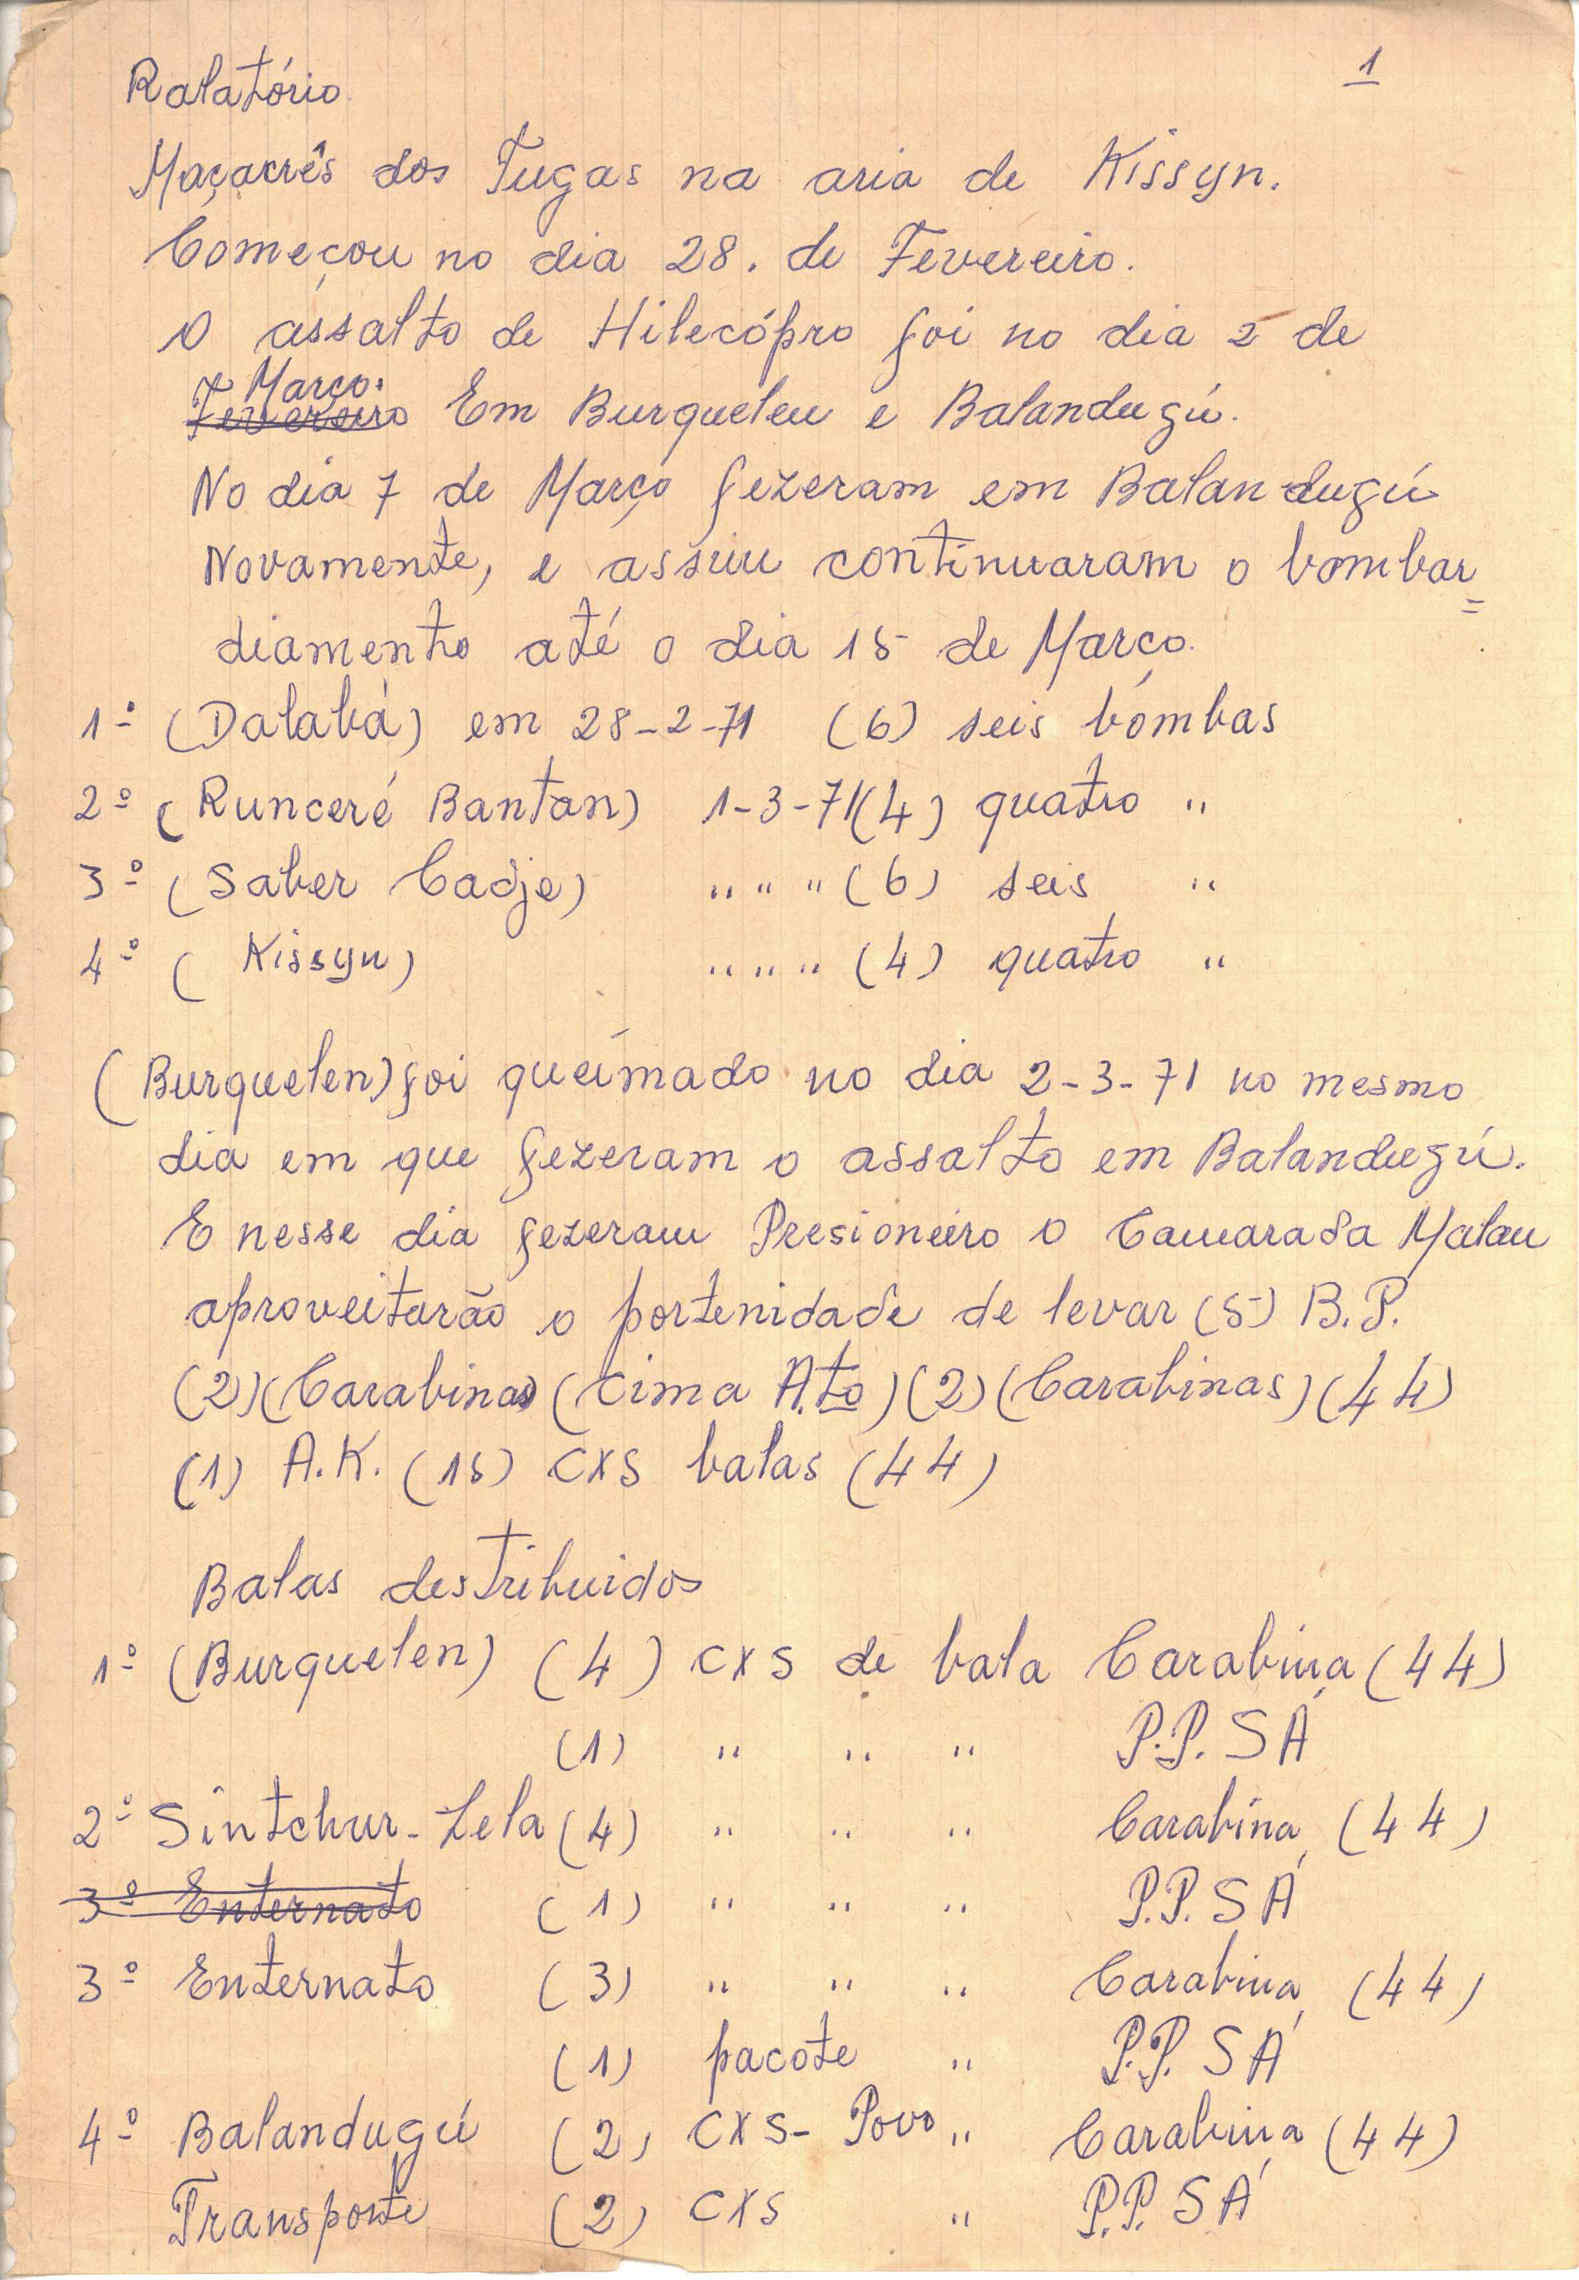 1
Ralatório
Maçacrês dos Tugas na aria de Kissyn.
Começou no dia 28. de Fevereiro.
O assalto de Hilecópro foi no dia 2 de
Março.
Fevereiro Em Burquelen e Balandugú.
No dia 7 de Março fezeram em Balandugú
Novamente, e assim continuaram o bombar=
diamento até o dia 15 de Março.
1º (Dalabá) em 28-2-71 (6) seis bombas
2º (Runceré Bantan) 1-3-71 (4) quatro "
3º (Saber Cadje) " " " (6) seis "
4º (Kissyn) " " " (4) quatro "
(Burquelen) foi queimado no dia 2-3-71 no mesmo
dia em que fezeram o assalto em Balandugú.
E nesse dia fezeram Presioneiro o Camarada Malan
aproveitarão o portenidade de levar (5) B.P.
(2) (Carabinas) (Cima A.to) (2) (Carabinas) (44)
(1) A.K. (15) cxs balas (44)
Balas destribuidos
1º (Burquelen) (4) cxs de bala Carabina (44)
(1) " " " P.P.SÁ
2º Sintchur-Lela (4) " " " Carabina (44)
3º Enternato (1) " " " P.P.SÁ
3º Enternato (3) " " " Carabina (44)
(1) pacote " P.P.SÁ
4º Balandugú (2) cxs- Povo " Carabina (44)
Transporte (2) cxs " P.P.SÁ